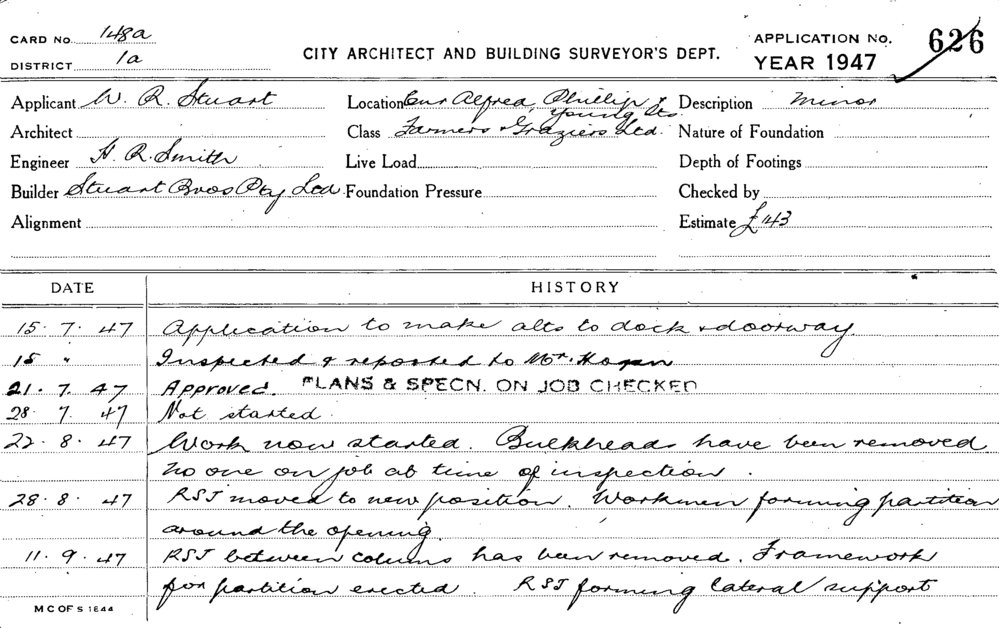 CARD No. 148a
DISTRICT 1a
CITY ARCHITECT AND BUILDING SURVEYOR'S DEPT.
APPLICATION No. 626
YEAR 1947
Applicant W. R. Stuart
Location Cnr Alfred, Phillip & Young Sts.
Description Minor
Architect
Class Farmers & Graziers Ltd.
Nature of Foundation
Engineer H. R. Smith
Live Load
Depth of Footings
Builder Stuart Bros Pty Ltd.
Foundation Pressure
Checked by
Alignment
Estimate £143
DATE HISTORY
15. 7. 47 Application to make alts to dock & doorway
15 " Inspected & reported to Mr.
21. 7. 47 Approved. PLANS & SPECN. ON JOB CHECKED
28. 7. 47 Not started.
22. 8. 47 Work now started. Bulkheads have been removed
no one on job at time of inspection.
28. 8. 47 RSJ moved to new position. Workmen forming partition
around the opening.
11. 9. 47 RSJ between columns has been removed. Framework
for partition erected. RSJ forming lateral support
M C OF S 1844